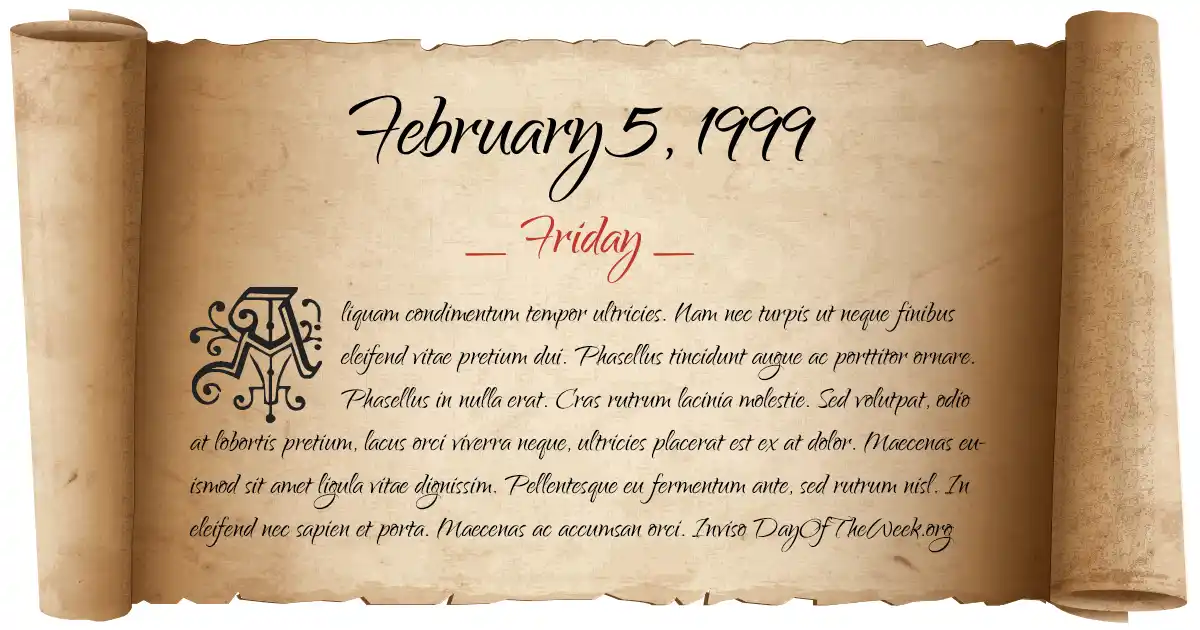 February 5, 1999
_ Friday _
Aliquam condimentum tempor ultricies. Nam nec turpis ut neque finibus
eleifend vitae pretium dui. Phasellus tincidunt augue ac porttitor ornare.
Phasellus in nulla erat. Cras rutrum lacinia molestie. Sed volutpat, odio
at lobortis pretium, lacus orci viverra neque, ultricies placerat est ex at dolor. Maecenas eu-
ismod sit amet ligula vitae dignissim. Pellentesque eu fermentum ante, sed rutrum nisl. In
eleifend nec sapien et porta. Maecenas ac accumsan orci. Inviso DayOfTheWeek.org